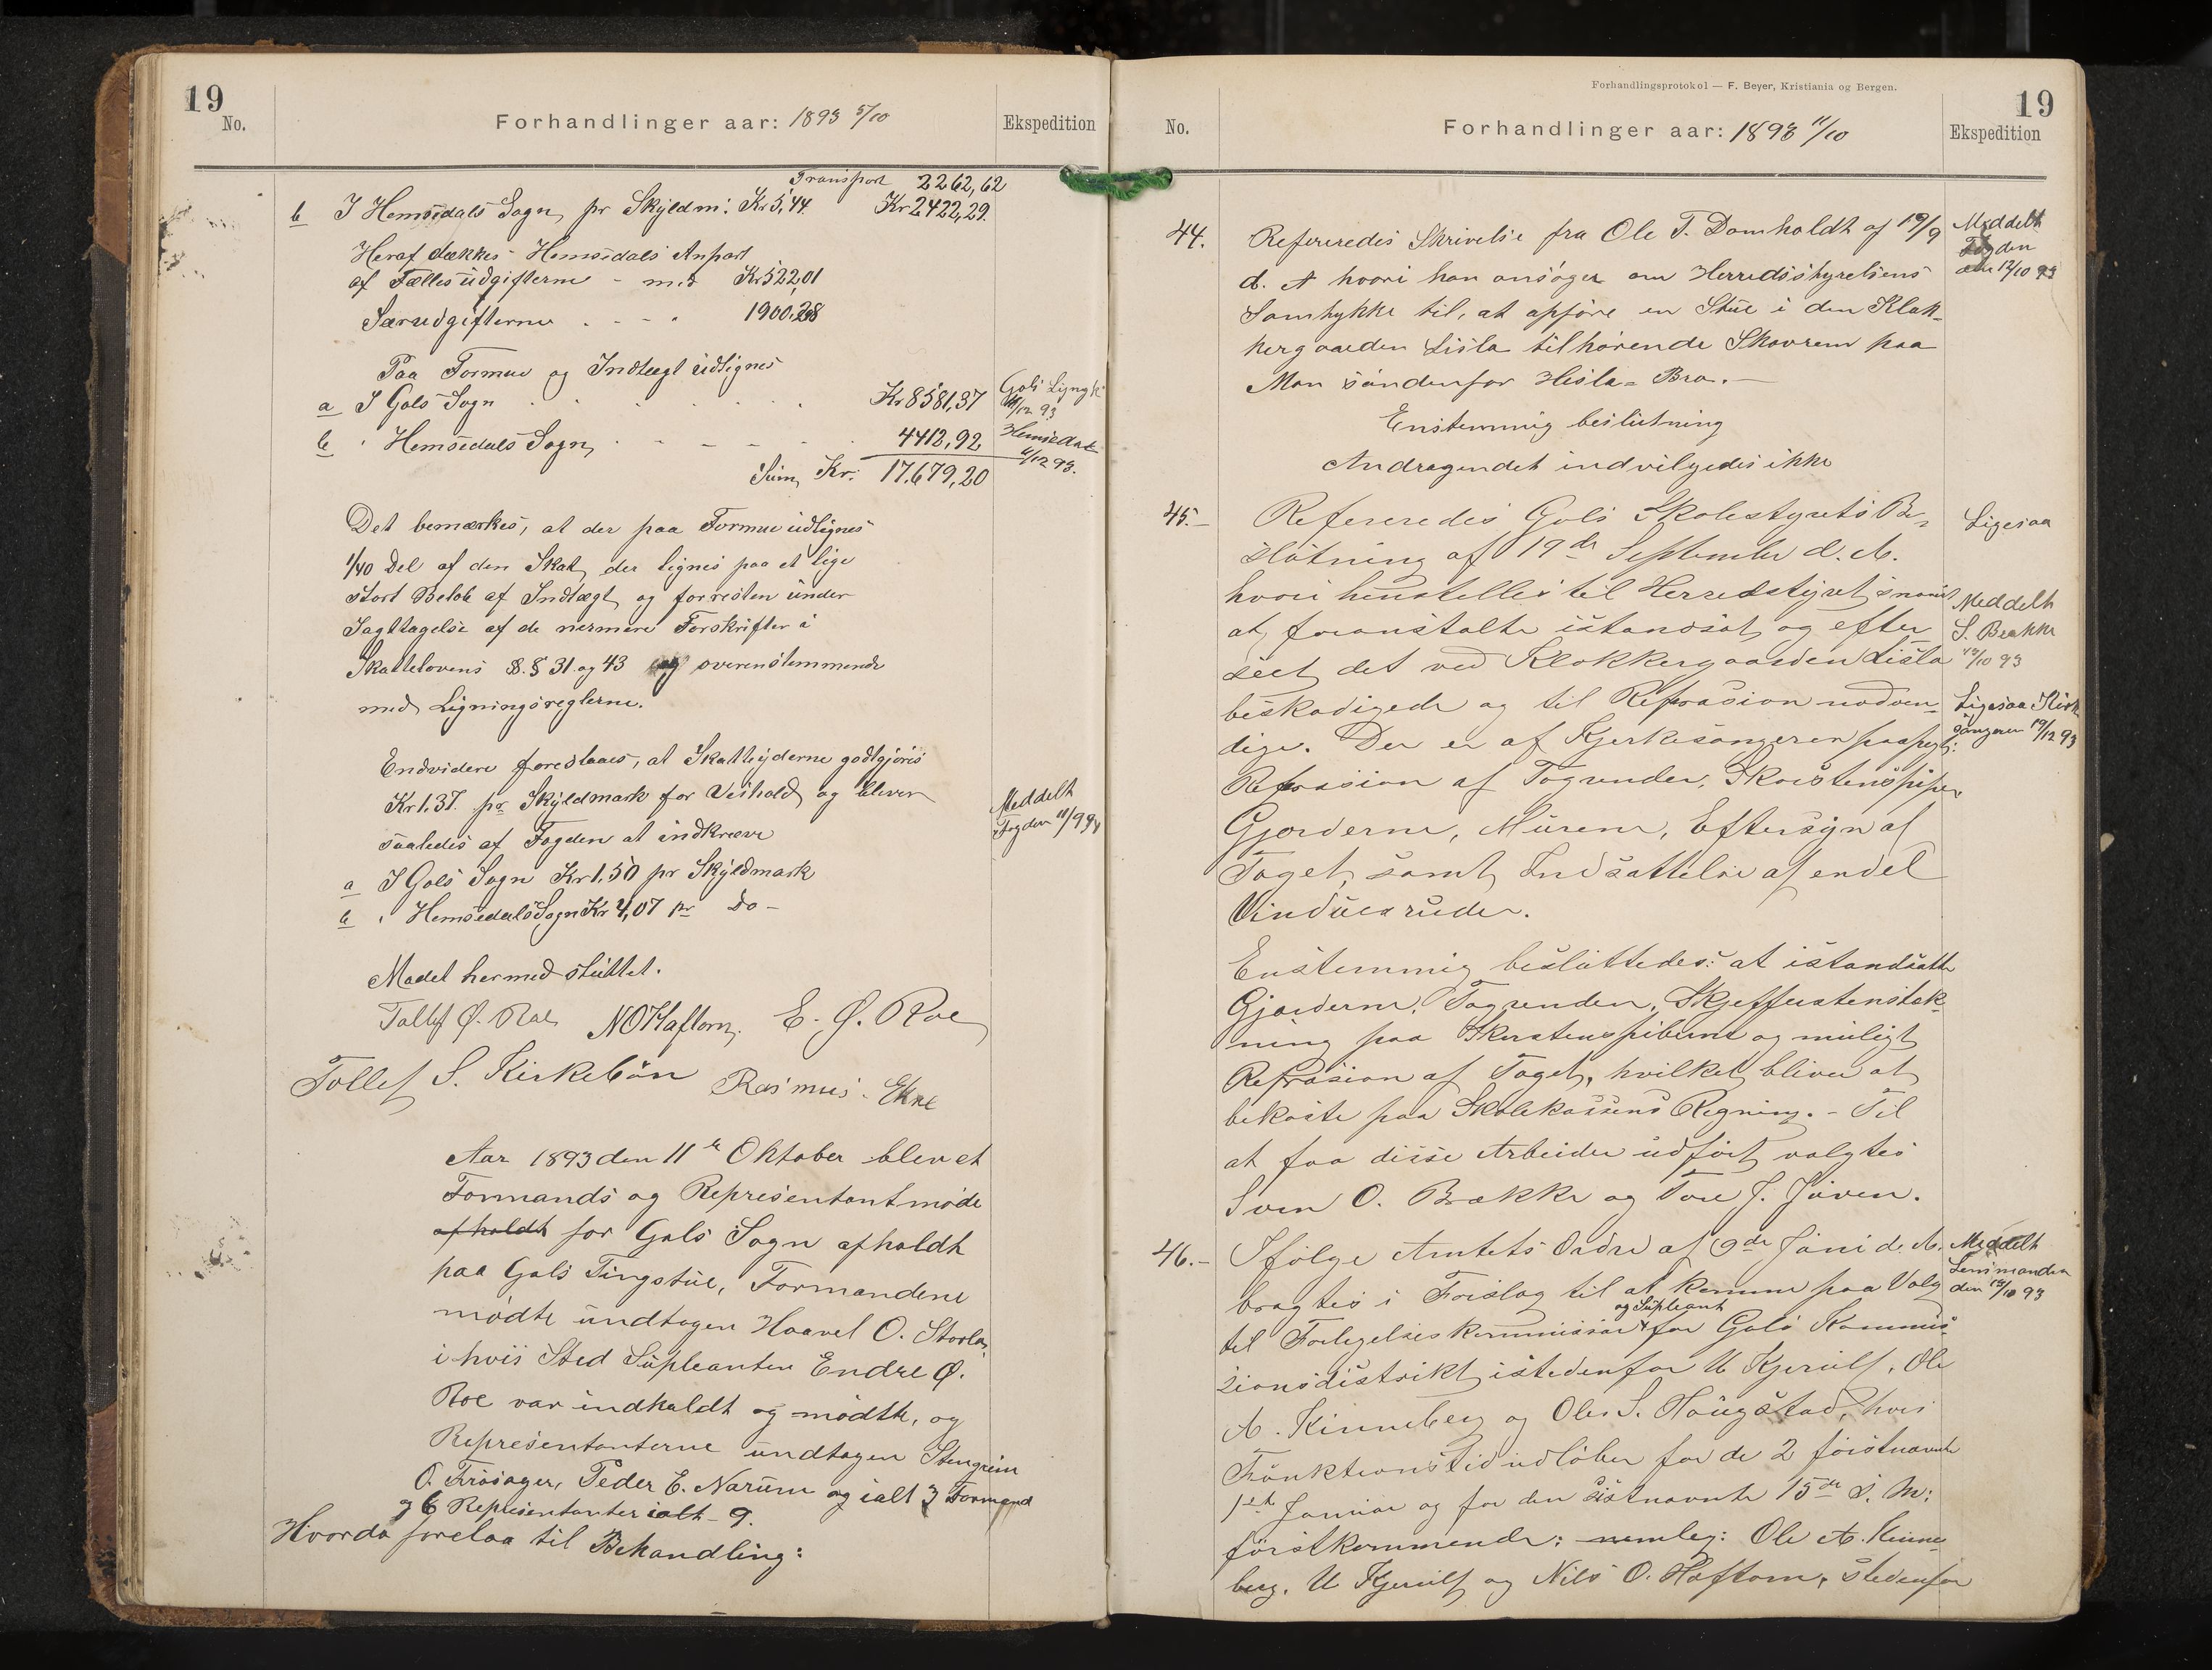 19
No.
Forhandlinger aar: 1893 5/10
Ekspedition
Transport 2262,62
b I Hemsedals Sogn pr Skyldm: Kr 5,44. Kr 2422,29.
Heraf dækkes - Hemsedals Anpart
af Fællesudgifterne - med Kr 522,01
Særudgifterne . - - " 1900,28
Paa Formue og Indtægt udlignes
a I Gols Sogn . . . . . . . Kr 8581,37
b " Hemsedals Sogn . - - - - . 4412,92
Sum Kr: 17.679,20
Gols
/12 93
Hemsedal
/12 93.
Det bemærkes, at der paa Formue udlignes
1/40 Del af den Skat, der lignes paa et lige
stort Beløb af Indtægt og forresten under
Iagttagelse af de nærmere Forskrifter i
Skattelovens §.§ 31 og 43 og overenstemmende
med Ligningsreglerne.
Endvidere foreslaaes, at Skatteyderne godtgjøres
Kr 1.37. pr Skyldmark for Veihold og bliver
saaledes af Fogden at indkræve
a I Gols Sogn Kr 1,50 pr Skyldmark
b " Hemsedals Sogn Kr 4,07 pr Do -
Meddelt
Fogden
Mødet hermed sluttet.
Tollef Ø. Roe N O Haftorn. E. Ø. Roe
Tollef S. Kirkebøn Rasmus Ekre
Aar 1893 den 11te Oktober blev et
Formands og Representantmøde
afholdt for Gols Sogn afholdt
paa Gols Tingstue, Formændene
mødte undtagen Haavel O. Storla,
i hvis Sted Supleanten Endre Ø.
Roe var indkaldt og mødte, og
Representanterne undtagen Stengrim
O. Frøsager, Peder E. Narum og ialt 3 Formænd
og 6 Representanter ialt - 9.
Hvorda forelaa til Behandling:
Forhandlingsprotokol — F. Beyer, Kristiania og Bergen.
19
No.
Forhandlinger aar: 1893 11/10
Ekspedition
44. Refereredes Skrivelse fra Ole T. Domholdt af 19/9
d. A hvori han ansøger om Herredsstyrelsens
Samtykke til, at opføre en Stue i den Klok-
kergaarden Lisla tilhørende Skovrem paa
Moen søndenfor Hesla-Bro. —
Enstemmig beslutning
Andragendet indvilgedes ikke
Meddelt
Fogden
den 12/10 93
45.- Refereredes Gols Skolestyrets Be-
slutning af 19de September d. A.
hvori henstilles til Herredstyret snarest
at, foranstalte istandsat og efter
seet det ved Klokkergaarden Lisla
beskadigede og til Reprasion nødven-
dige. Der er af Kjerkesangeren paapegt:
Reprasion af Tagrender, Skorstenspiper
Gjorderne, Murene, Eftersyn af
Taget, samt Indsættelse af endel
Vinduesruder.
Ligesaa
Meddelt
S. Brække
/10 93
Ligesaa Kirke
sangeren 19/12 93
Enstemmig besluttedes: at istandsætte
Gjorderne, Tagrenden, Skjefferstenstæk-
ning paa Skorstenspiberne og muligt
Reprasion af Taget, hvilket bliver at
bekoste paa Skolekassens Regning. - Til
at faa disse Arbeider udført valgtes
Sven O. Brække og Tore J. Jøven.
46.- Ifølge Amtets Ordre af 9de Juni d. A.
bragtes i Forslag til at komme paa Valg
og Supleant
til Forligelseskommissær for Gols Kommis-
sionsdistrikt istedenfor U Kjerulf, Ole
A. Kinneberg og Ole S. Haugstad, hvis
Funktionstid udløber for de 2 førstnævnte
1ste Januar og for den sistnævnte 15de s. M:
førstkommende: nemleg: Ole A. Kinne-
berg, U Kjerulf og Nils O. Haftorn, stedenfor
Meddelt
Lensmanden
den /10 93